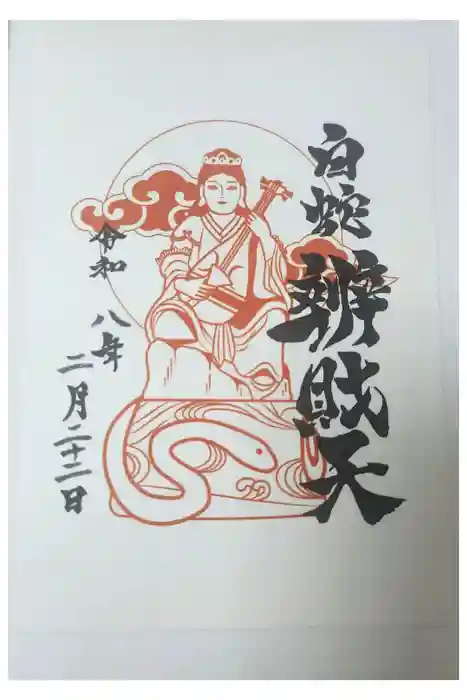 白蛇辨財天
令和八年
二月二十二日